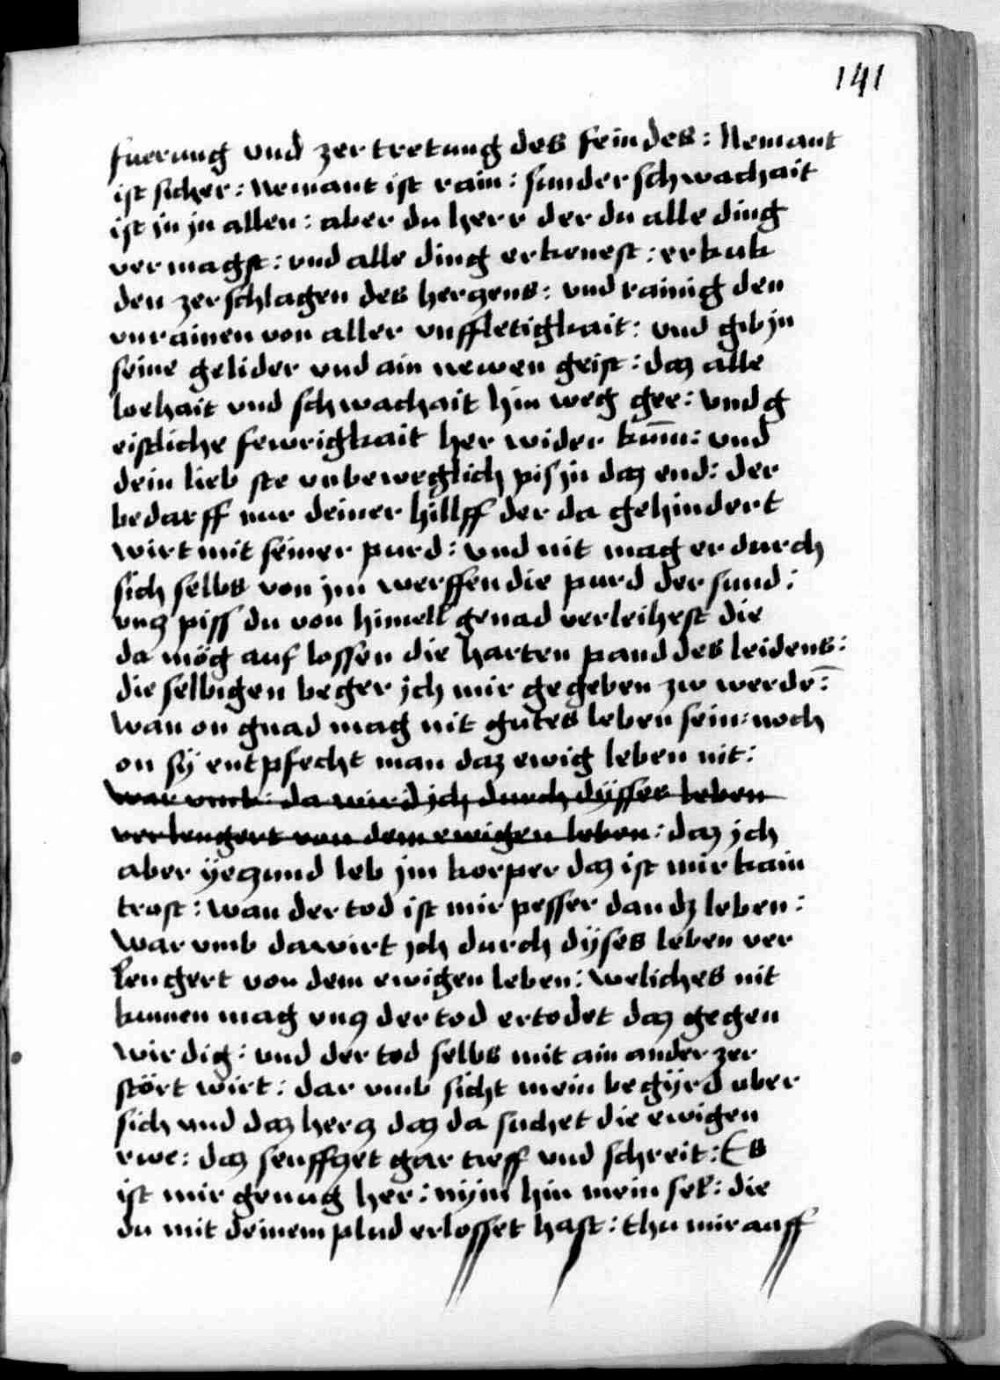 141
fuerung vnd zertretung des feindes: Nemant
ist sicher: Nemant ist rain: sunder schwachait
ist jn jn allen: aber du herr der du alle ding
vermagst: vnd alle ding erkenest: erkuk
den zerschlagen des herczens: vnd rainig den
vnrainen von aller vnffletigkait: vnd gib jn
seine gelider vnd ain newen geist: daz alle
loehait vnd schwachait hin weg gee: vnd g
eistliche fewrigkait her wider kum̄: vnd
dein lieb ste vnbeweglich pis jn daz end: der
bedarff nur deiner hillff der da gehindert
wirt mit seiner purd: vnd nit mag er durch
sich selbs von jm werffen die purd der sund:
vncz piss du von himell genad verleihest die
da mög auf lossen die harten pand des leidens:
die selbigen beger jch mir gegeben zw werde͞:
wan on gnad mag nit gutes leben sein: noch
on sÿ entpfecht man daz ewig leben nit:
War vmb: da wird jch durch dÿsses leben
verlengert von dem ewigen leben: daz jch
aber ÿeczund leb jm korper daz ist mir kain
trost: wan der tod ist mir pesser dan dz leben:
War vmb da wirt jch durch dÿses leben ver
lengert von dem ewigen leben: weliches nit
kumen mag vncz der tod ertodet daz gegen
wirdig: vnd der tod selbs mit ain ander zer
stört wirt: dar vmb sicht mein begÿrd vber
sich vnd daz hercz daz da suchet die ewigen
rwe: daz seuffczet gar tieff vnd schreit: Es
ist mir genug her: nÿm hin mein sel: die
du mit deinem plud erlosset hast: thu mir auff